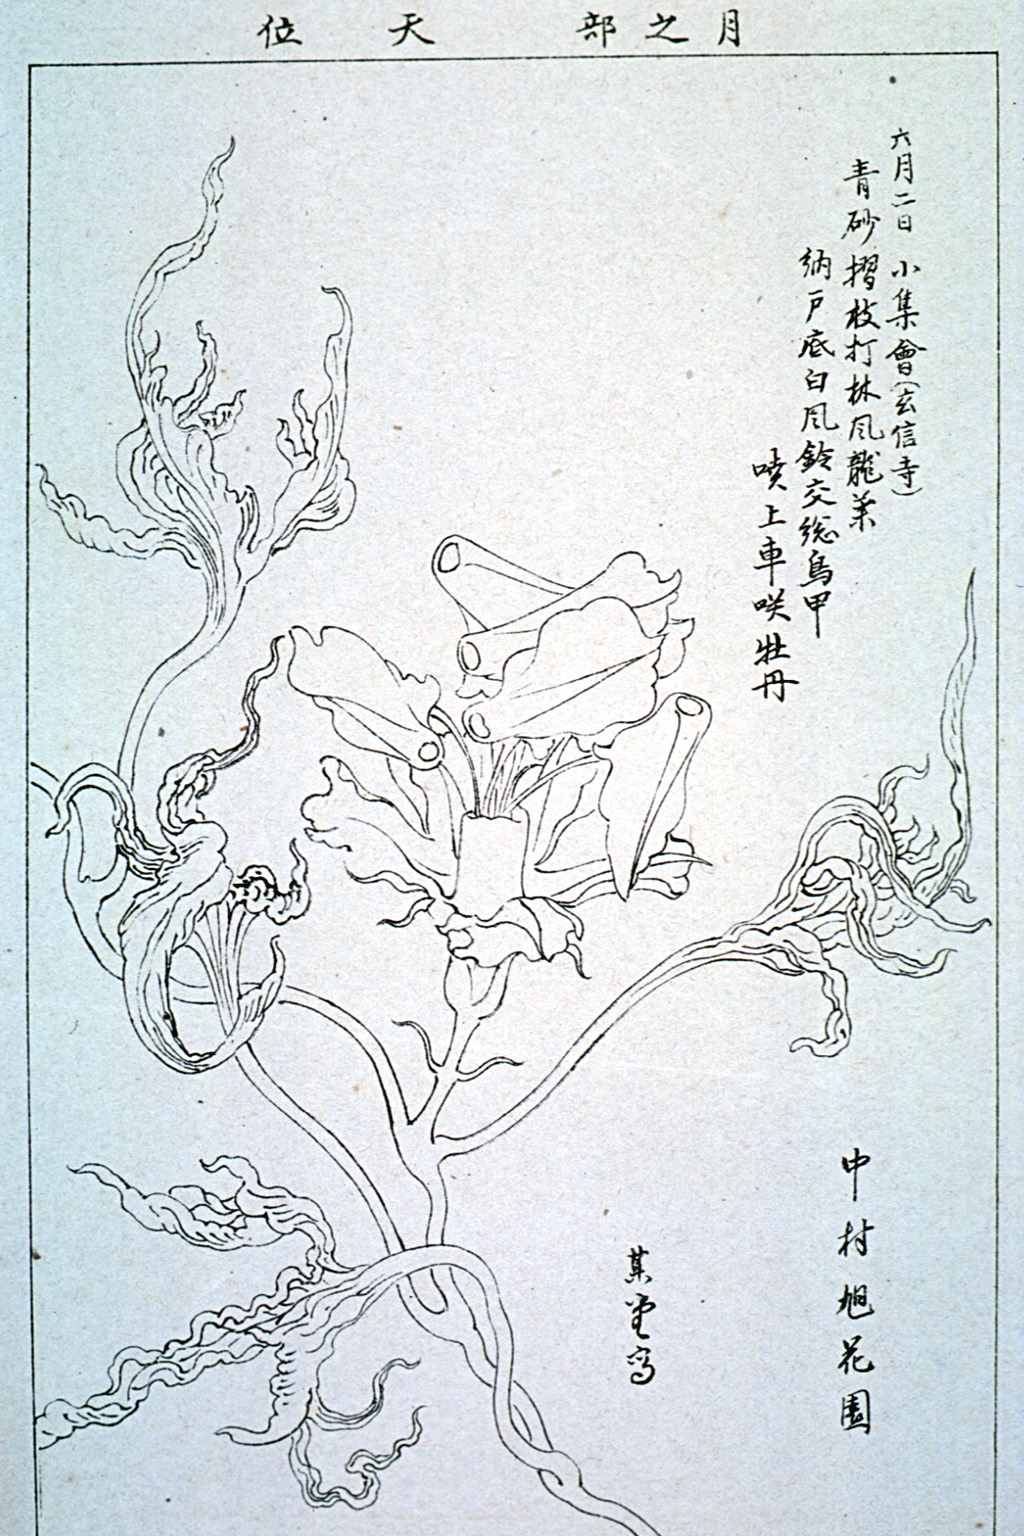 月之部　天　位
六月二日　小集會（玄信寺）
青砂摺枝打林風龍葉
納戸底白風鈴交総鳥甲
噴上車咲牡丹
中村旭花園
某堂寫